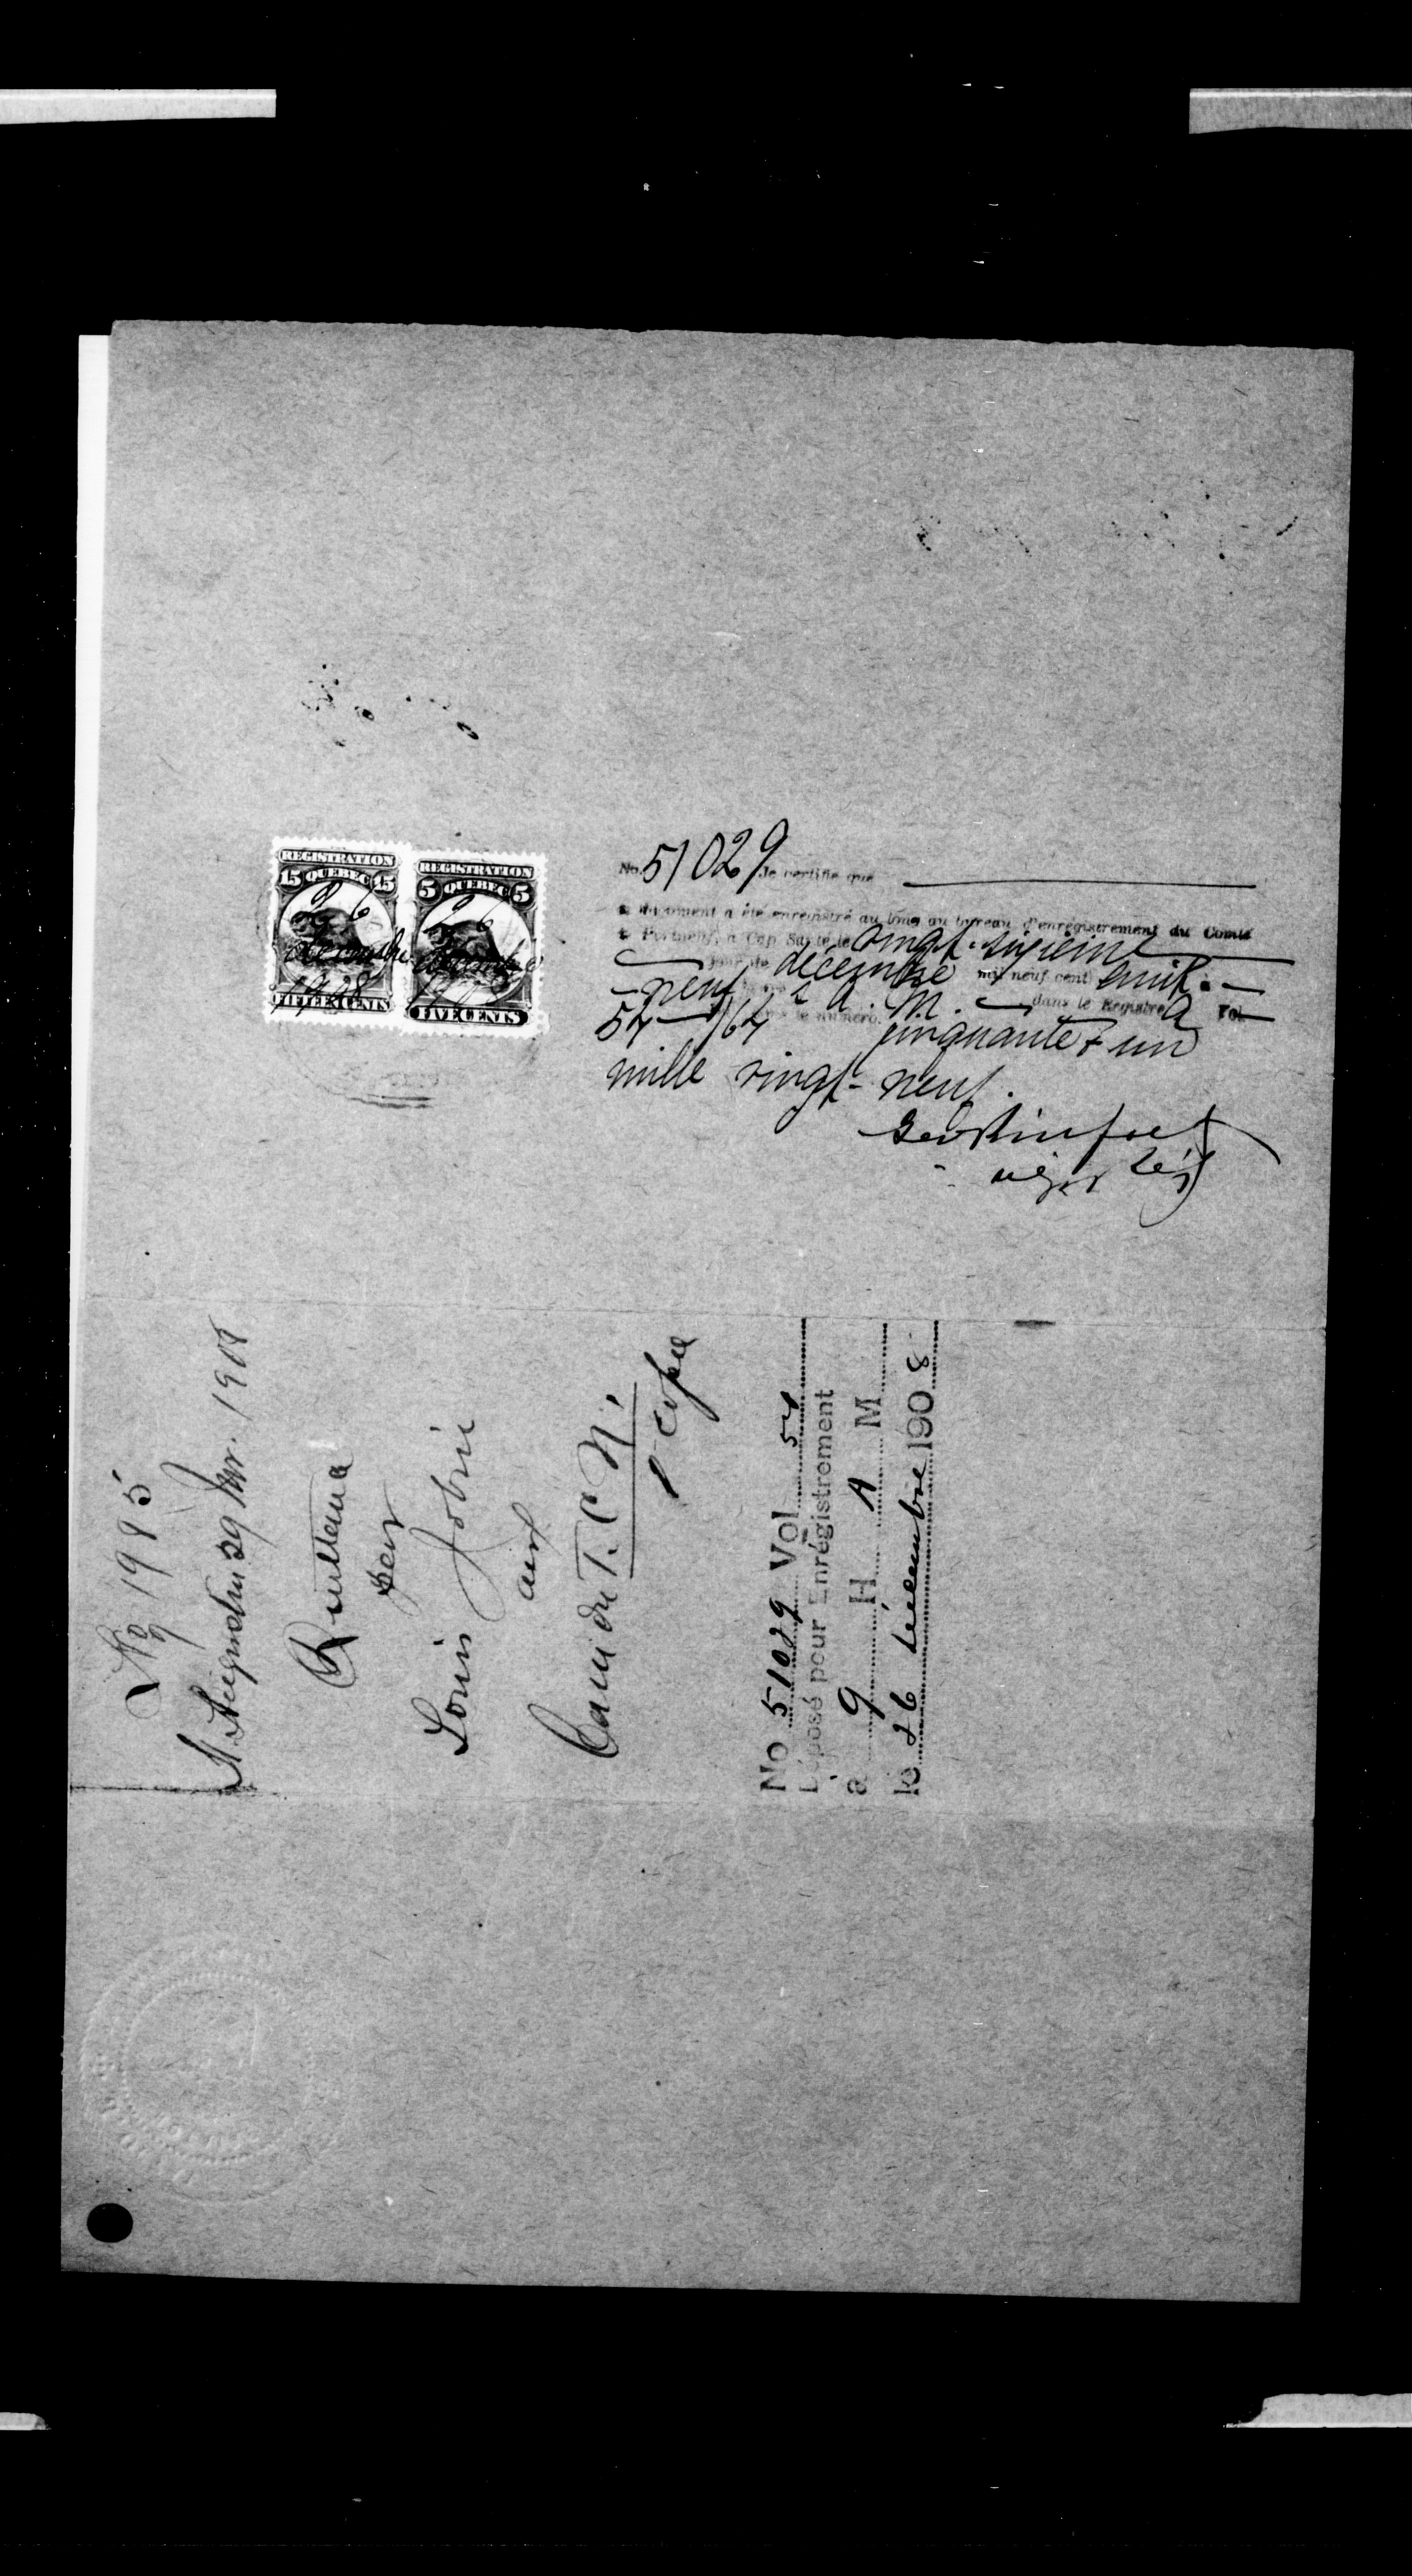 REGISTRATION
15 QUEBEC 15
26
décembre
1908
FIFTEEN CENTS
REGISTRATION
5 QUEBEC 5
26
décembre
1908
FIVE CENTS
No. 51029 Je certifie que
document a été enregistré au long au bureau d'enregistrement du Comté
Portneuf, à Cap Santé le vingt-sixième
jour de décembre mil neuf cent huit
neuf A. M. dans le Registre A Vol
54 /64 le numéro cinquante & un
mille vingt-neuf.
No 1985
St Augustin 29 1908
Quittance
par
Louis Jobin
aux
Com du T. C. N.
1e Copie
No 51029 Vol 54
Déposé pour Enrégistrement
à 9 H A M
le 26 décembre 1908